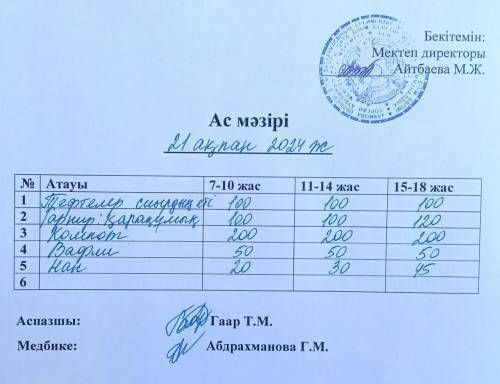 Бекітемін:
Мектеп директоры
Айтбаева М.Ж.
Ас мәзірі
21 ақпан 2024 ж
№ Атауы 7-10 жас 11-14 жас 15-18 жас
1 Тефтелер сиырдың еті 100 100 100
2 Гарнир: Қарақұмық 100 100 120
3 Компот 200 200 200
4 Вафли 50 50 50
5 Нан 20 30 45
6
Аспазшы: Гаар Т.М.
Медбике: Абдрахманова Г.М.